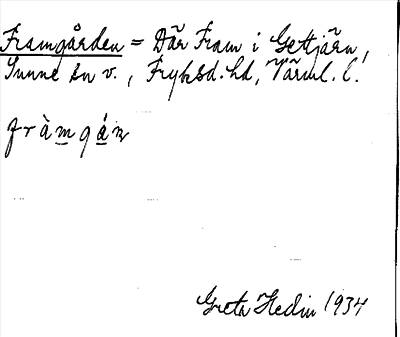 Framgården = Där Fram i Gettjärn,
Sunne sn v., Fryksd. hd, Värml. l.
fràmgá̱n
Greta Hedin 1934